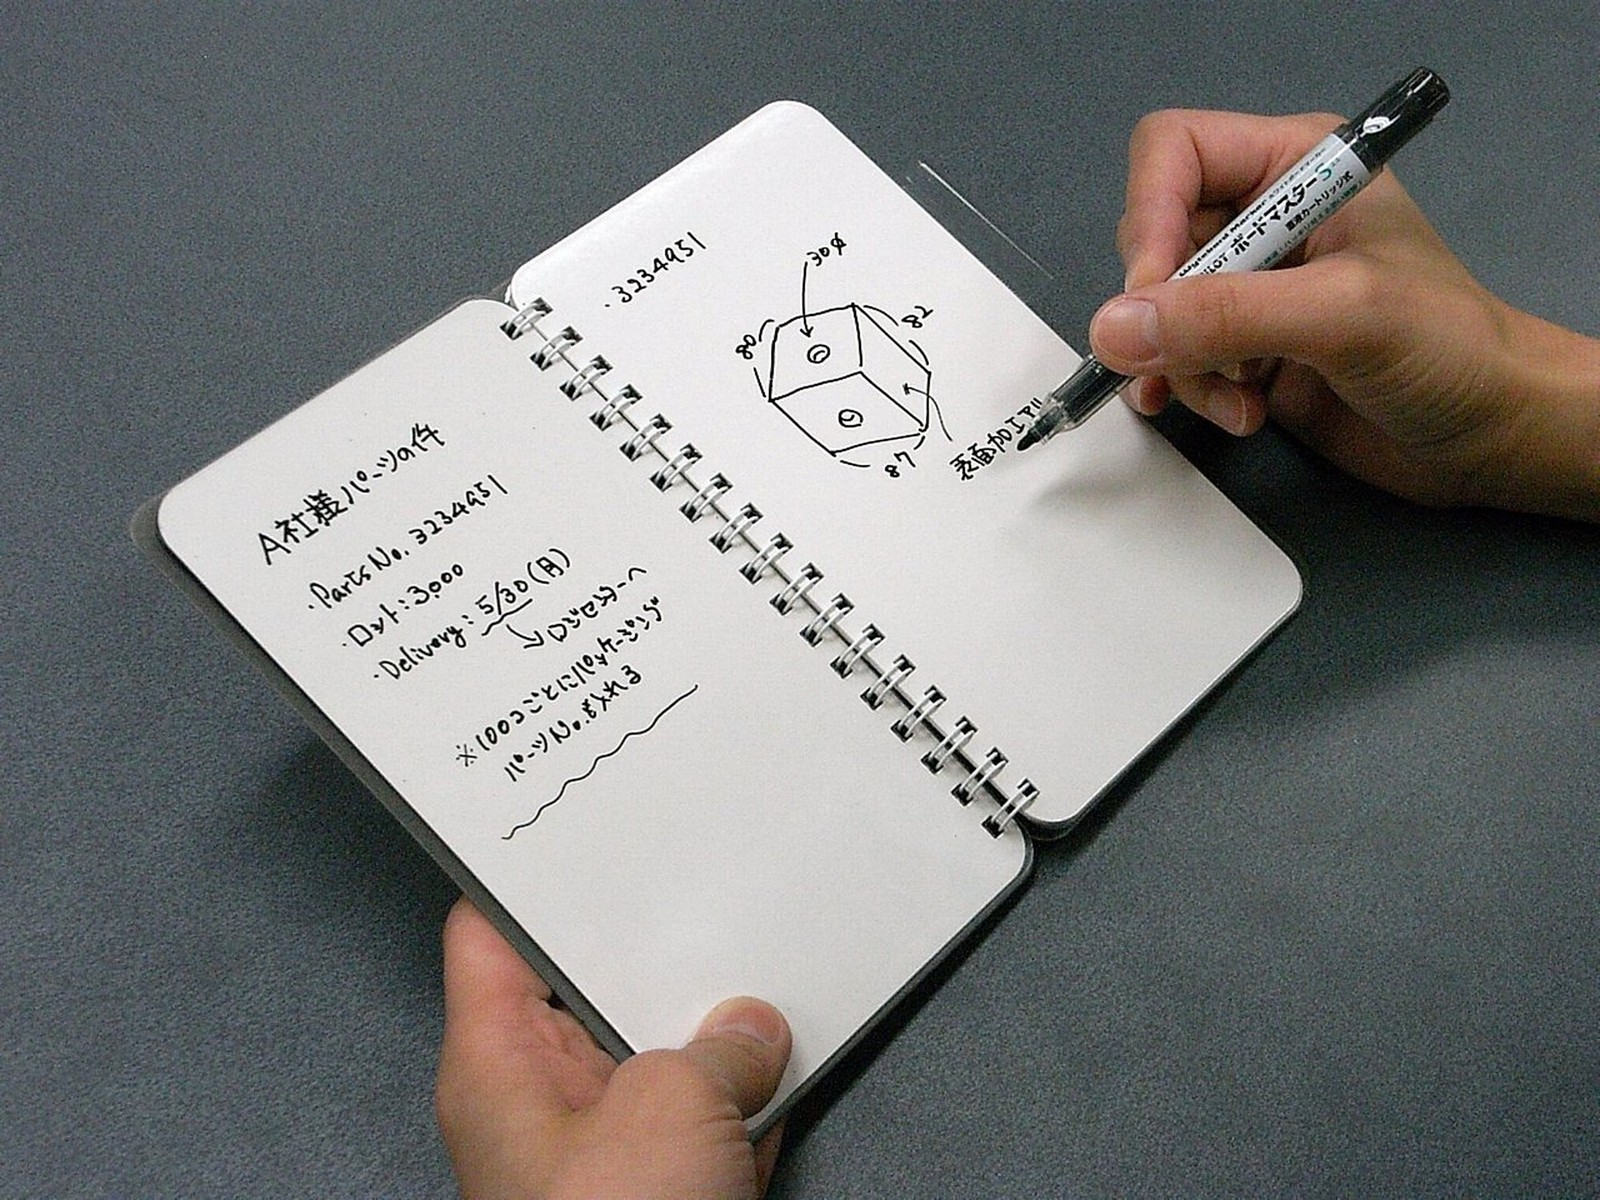 A社様パーツの件
・Parts No. 3234951
・ロット：3000
・Delivery：5/30(月)
↘ロジセンターへ
※100コごとにパッケージング
パーツNo.も入れる
・3234951
30φ
80
82
87
表面加工アリ
Wyteboard Marker ホワイトボードマーカー
PILOT ボードマスターS
直液カートリッジ式